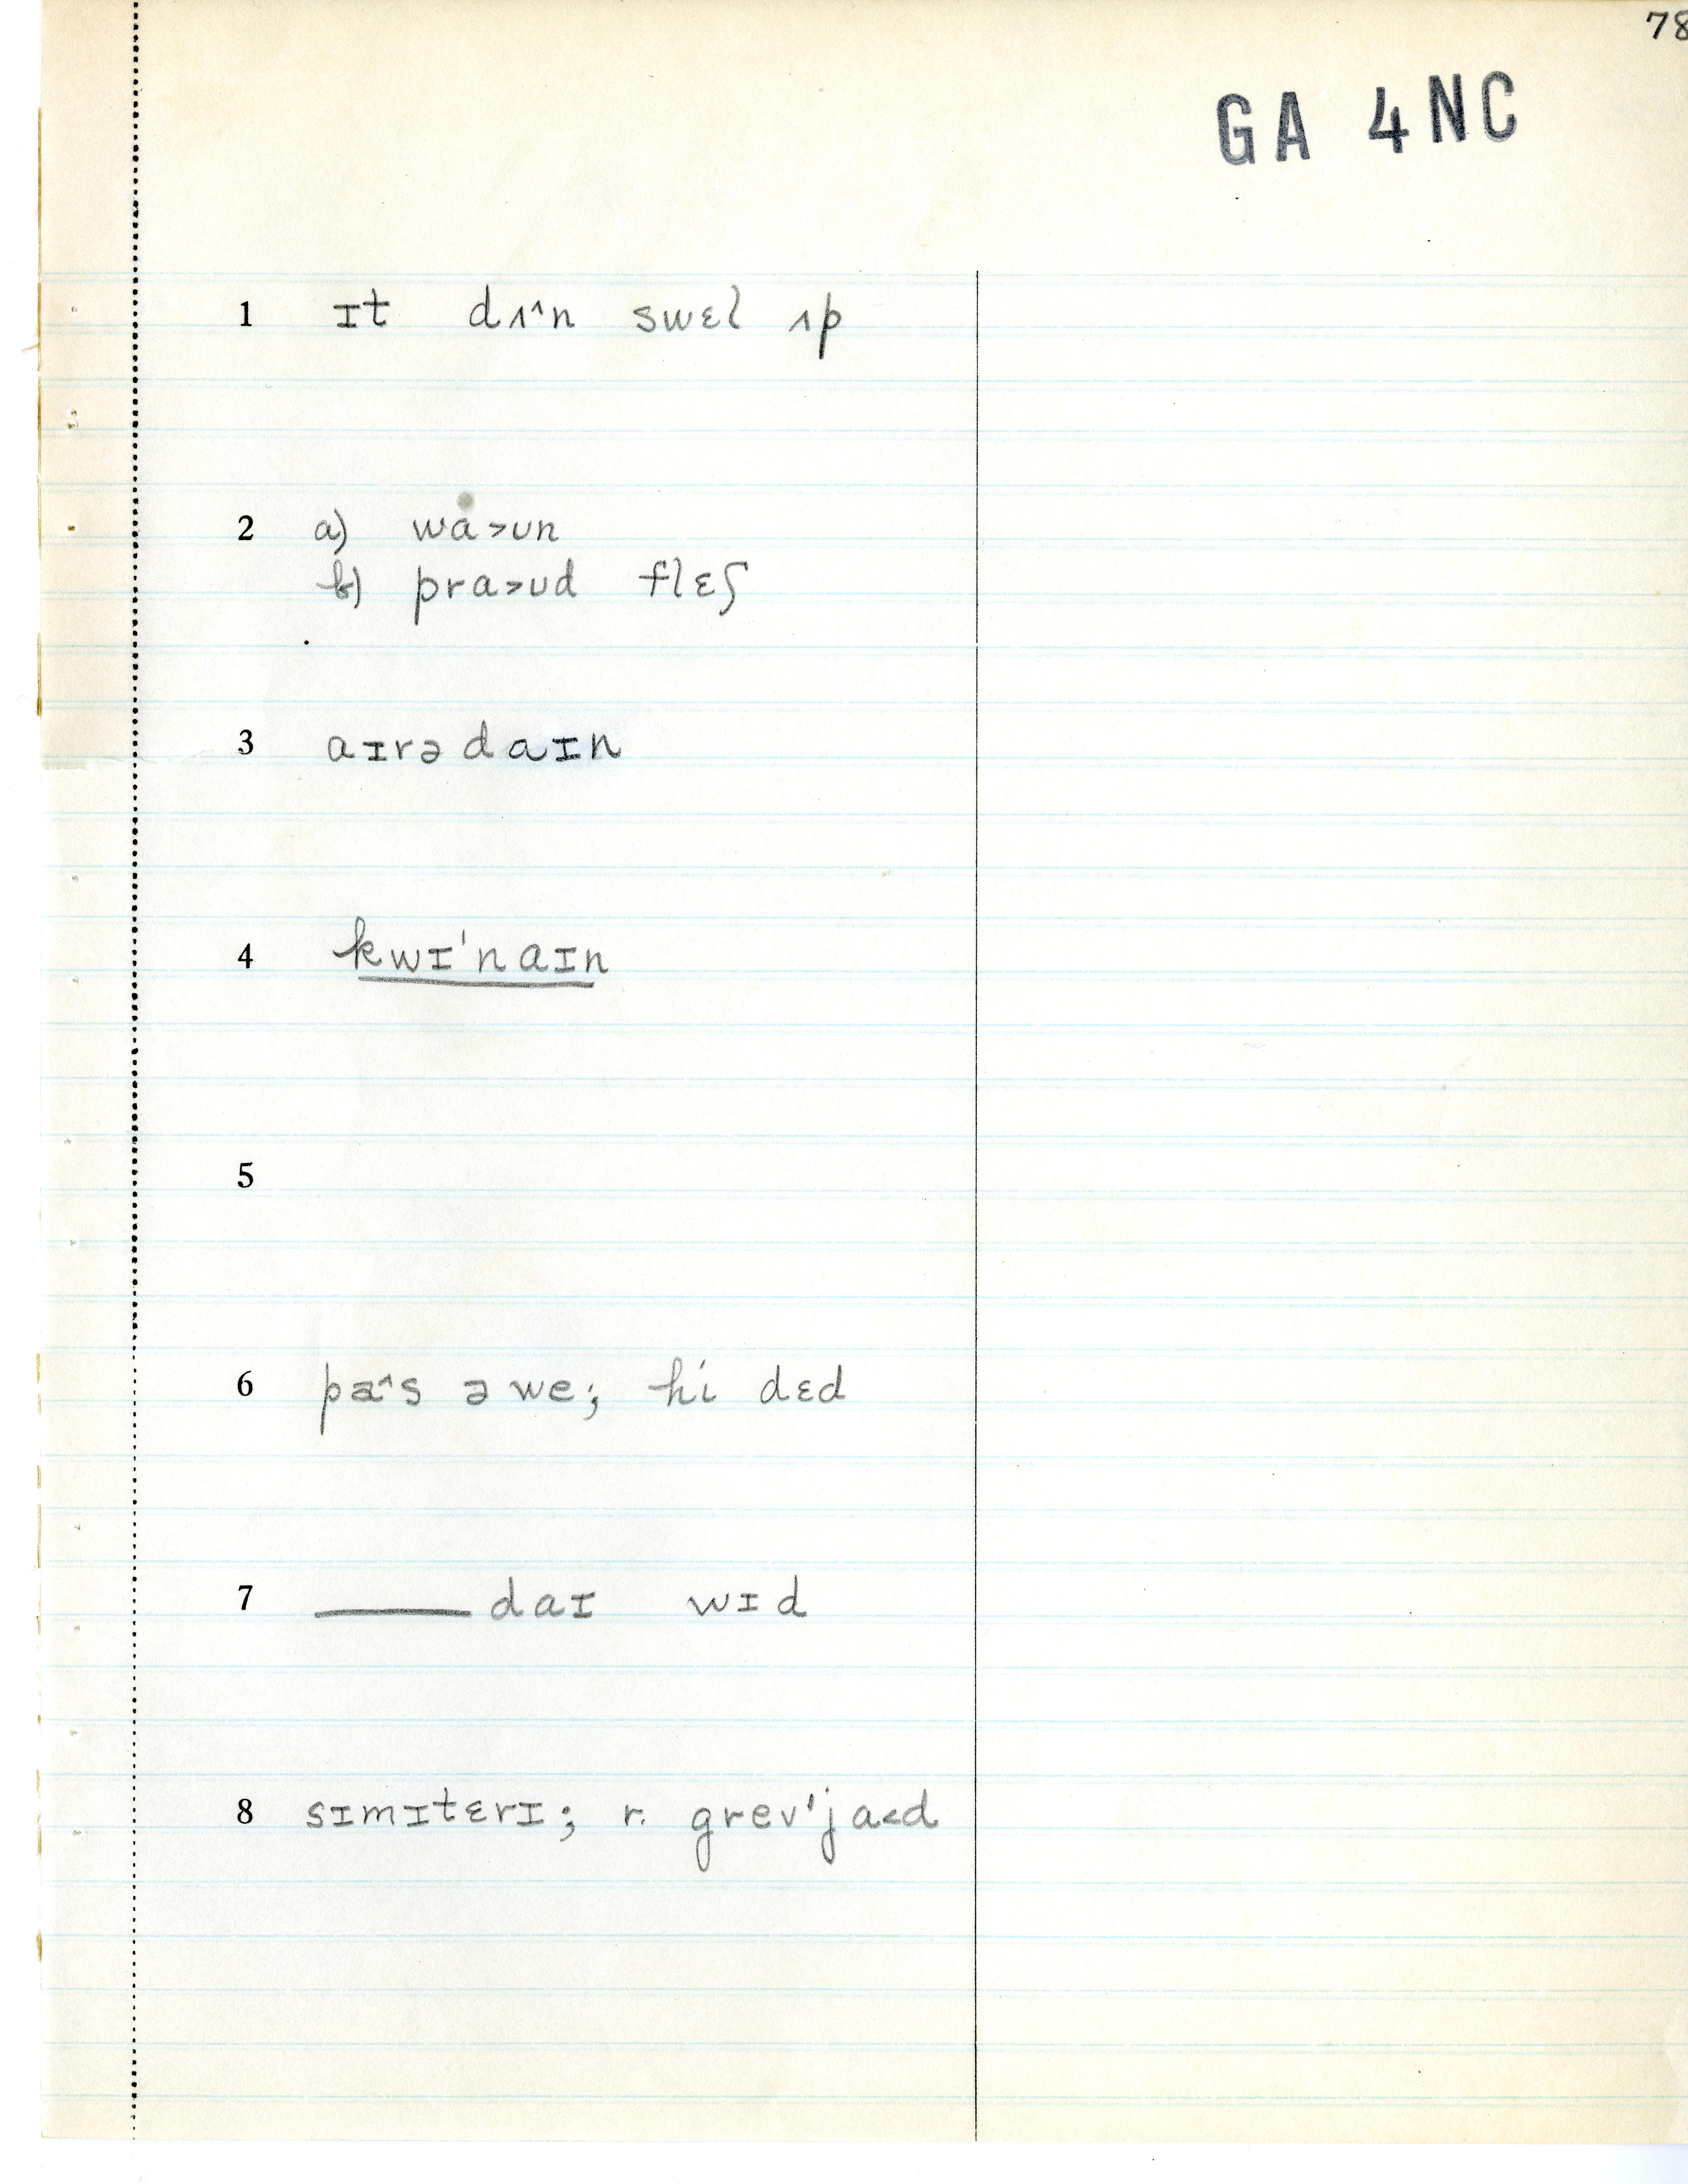 78
GA 4NC
1 ɪt dʌ^n swɛl ʌp
2 a) wa>ʊn
b) pra>ʊd flɛʃ
3 aɪrədaɪn
4 kwɪ'naɪn
5
6 pa^s əwe; hi dɛd
7 ——— daɪ wɪd
8 sɪmɪtɛrɪ; r. grev'ja<d